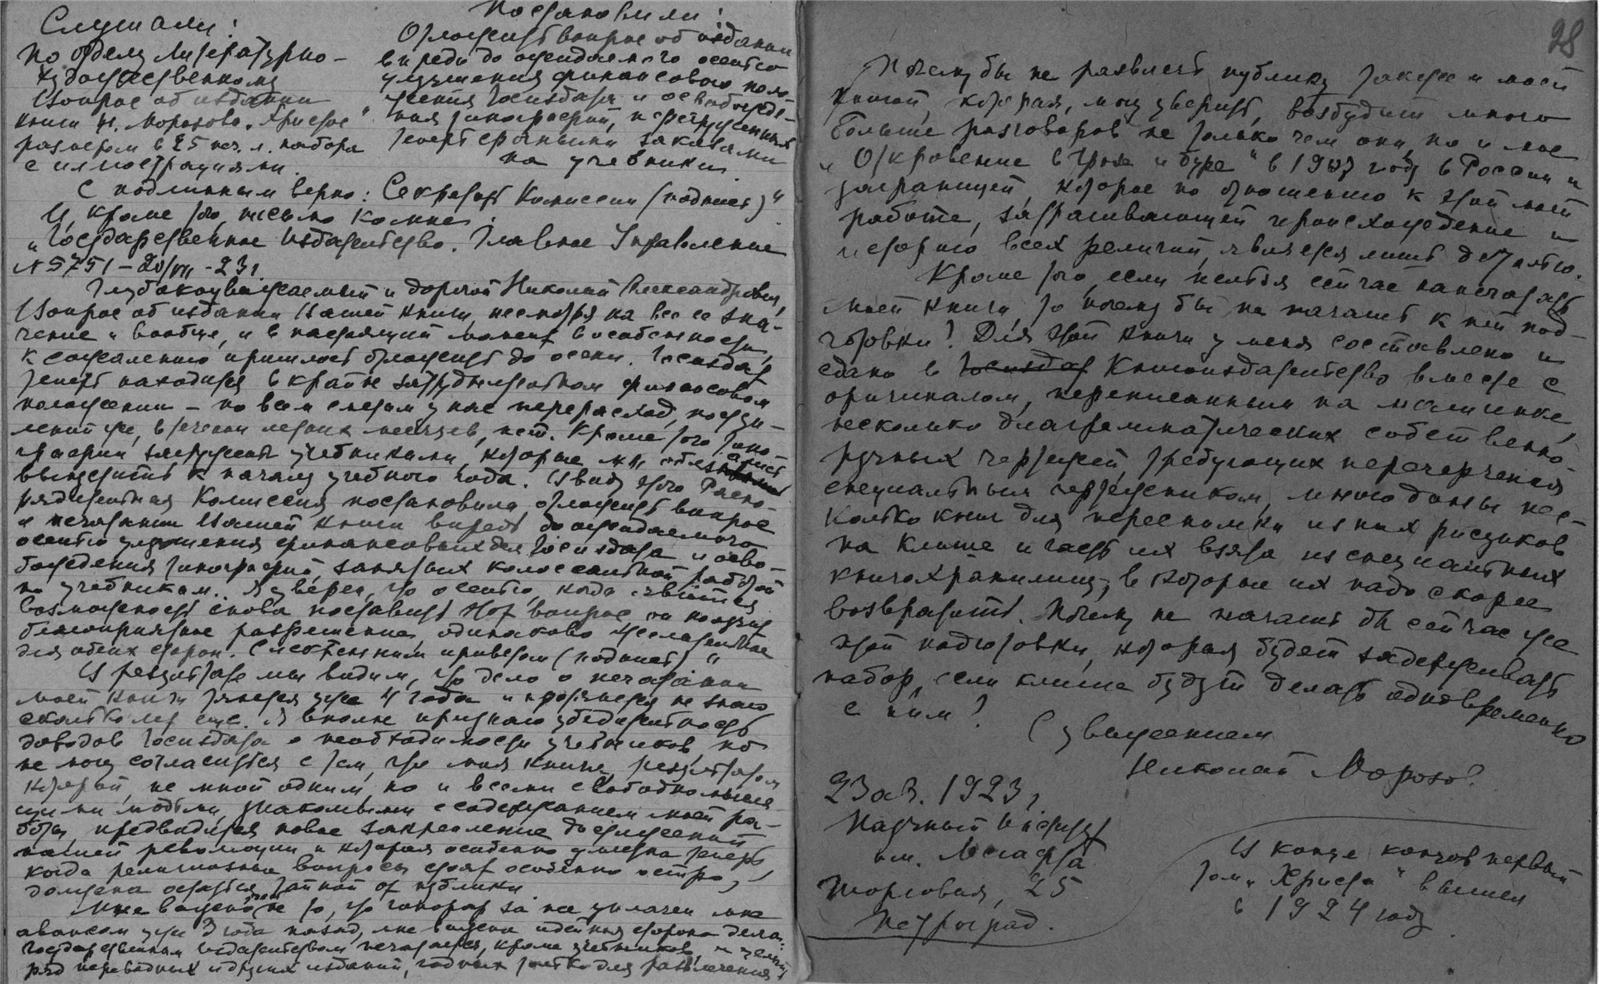 Слушали:
По отделу Литературно-
художественному
Вопрос об издании
книги Н. Морозова „Христос"
размером в 25 печ. л. набора
с иллюстрациями.
Постановили:
Отложить вопрос об издании
впредь до ожидаемого осенью
улучшения финансового поло-
жения Госиздата и освобожде-
ния типографий, перегруженных
теперь срочными заказами
на учебники.
С подлинным верно: Секретарь Комиссии (подпись)"
И, кроме того, письмо ко мне:
„Государственное Издательство. Главное Управление
N 5751 – 20/VII – 23 г.
Глубокоуважаемый и дорогой Николай Александрович,
Вопрос об издании Вашей книги, несмотря на все ее зна-
чение и вообще, и в настоящий момент в особенности,
к сожалению пришлось отложить до осени. Госиздат
теперь находится в крайне затруднительном финансовом
положении – по всем сметам у нас перерасход, поступ-
лений же, в течении летних месяцев, нет. Кроме того типо-
графии загружены учебниками, которые мы обязались
выпустить к началу учебного года. Ввиду этого Распо-
рядительная Комиссия постановила отложить вопрос
о печатании Вашей книги впредь до ожидаемого
осенью улучшения финансовых дел Госиздата и осво-
бождения типографий, занятых колоссальной работой
по учебникам. Я уверен, что осенью, когда явится
возможность снова поставить этот вопрос, он получит
благоприятное разрешение, одинаково желательное
для обеих сторон. С искренним приветом (подпись)"
В результате мы видим, что дело о печатании
моей книги тянется уже 4 года и протянется не знаю
сколько лет еще. Я вполне признаю убедительность
доводов Госиздата о необходимости учебников, но
не могу согласиться с тем, что моя книга, результатом
которой, не мной одним, но и всеми свободомысля-
щими людьми знакомыми с содержанием моей ра-
боты, предвидится новое закрепление достижений
нашей революции и которая особенно уместна теперь,
когда религиозные вопросы стоят особенно остро,
должна остаться тайной от публики.
Мне важно не то, что гонорар за нее уплачен мне
авансом уже 3 года назад, мне важна идейная сторона дела:
государственным издательством печатается, кроме учебников, и целый
ряд переводных и других изданий, годных только для развлечения
28
Почему бы не развлечь публику также и моей
книгой, которая, могу уверить, возбудит много
больше разговоров не только чем они, но и мое
„Откровение в грозе и буре" в 1907 году в России и
заграницей, которое по отношению к этой моей
работе, затрагивающей происхождение и
историю всех религий, является лишь деталью.
Кроме того, если нельзя сейчас напечатать
моей книги, то почему бы не начать к ней под-
готовки? Для этой книги у меня составлено и
сдано в Госиздат Книгоиздательство вместе с
оригиналом, переписанным на машинке,
несколько диаграмматических собственно-
ручных чертежей, требующих перечерчения
специальным чертежником, мною даны нес-
колько книг для пересъемки из них рисунков
на клише и часть их взята из специальных
книгохранилищ, в которые их надо скорее
возвратить. Почему не начать бы сейчас уже
этой подготовки, которая будет задерживать
набор, если клише будут делать одновременно
с ним?
С уважением
Николай Морозов.
23 авг. 1923 г.
Научный Институт
им. Лесгафта
Торговая, 25
Петроград.
В конце концов первый
том „Христа" вышел
в 1924 году